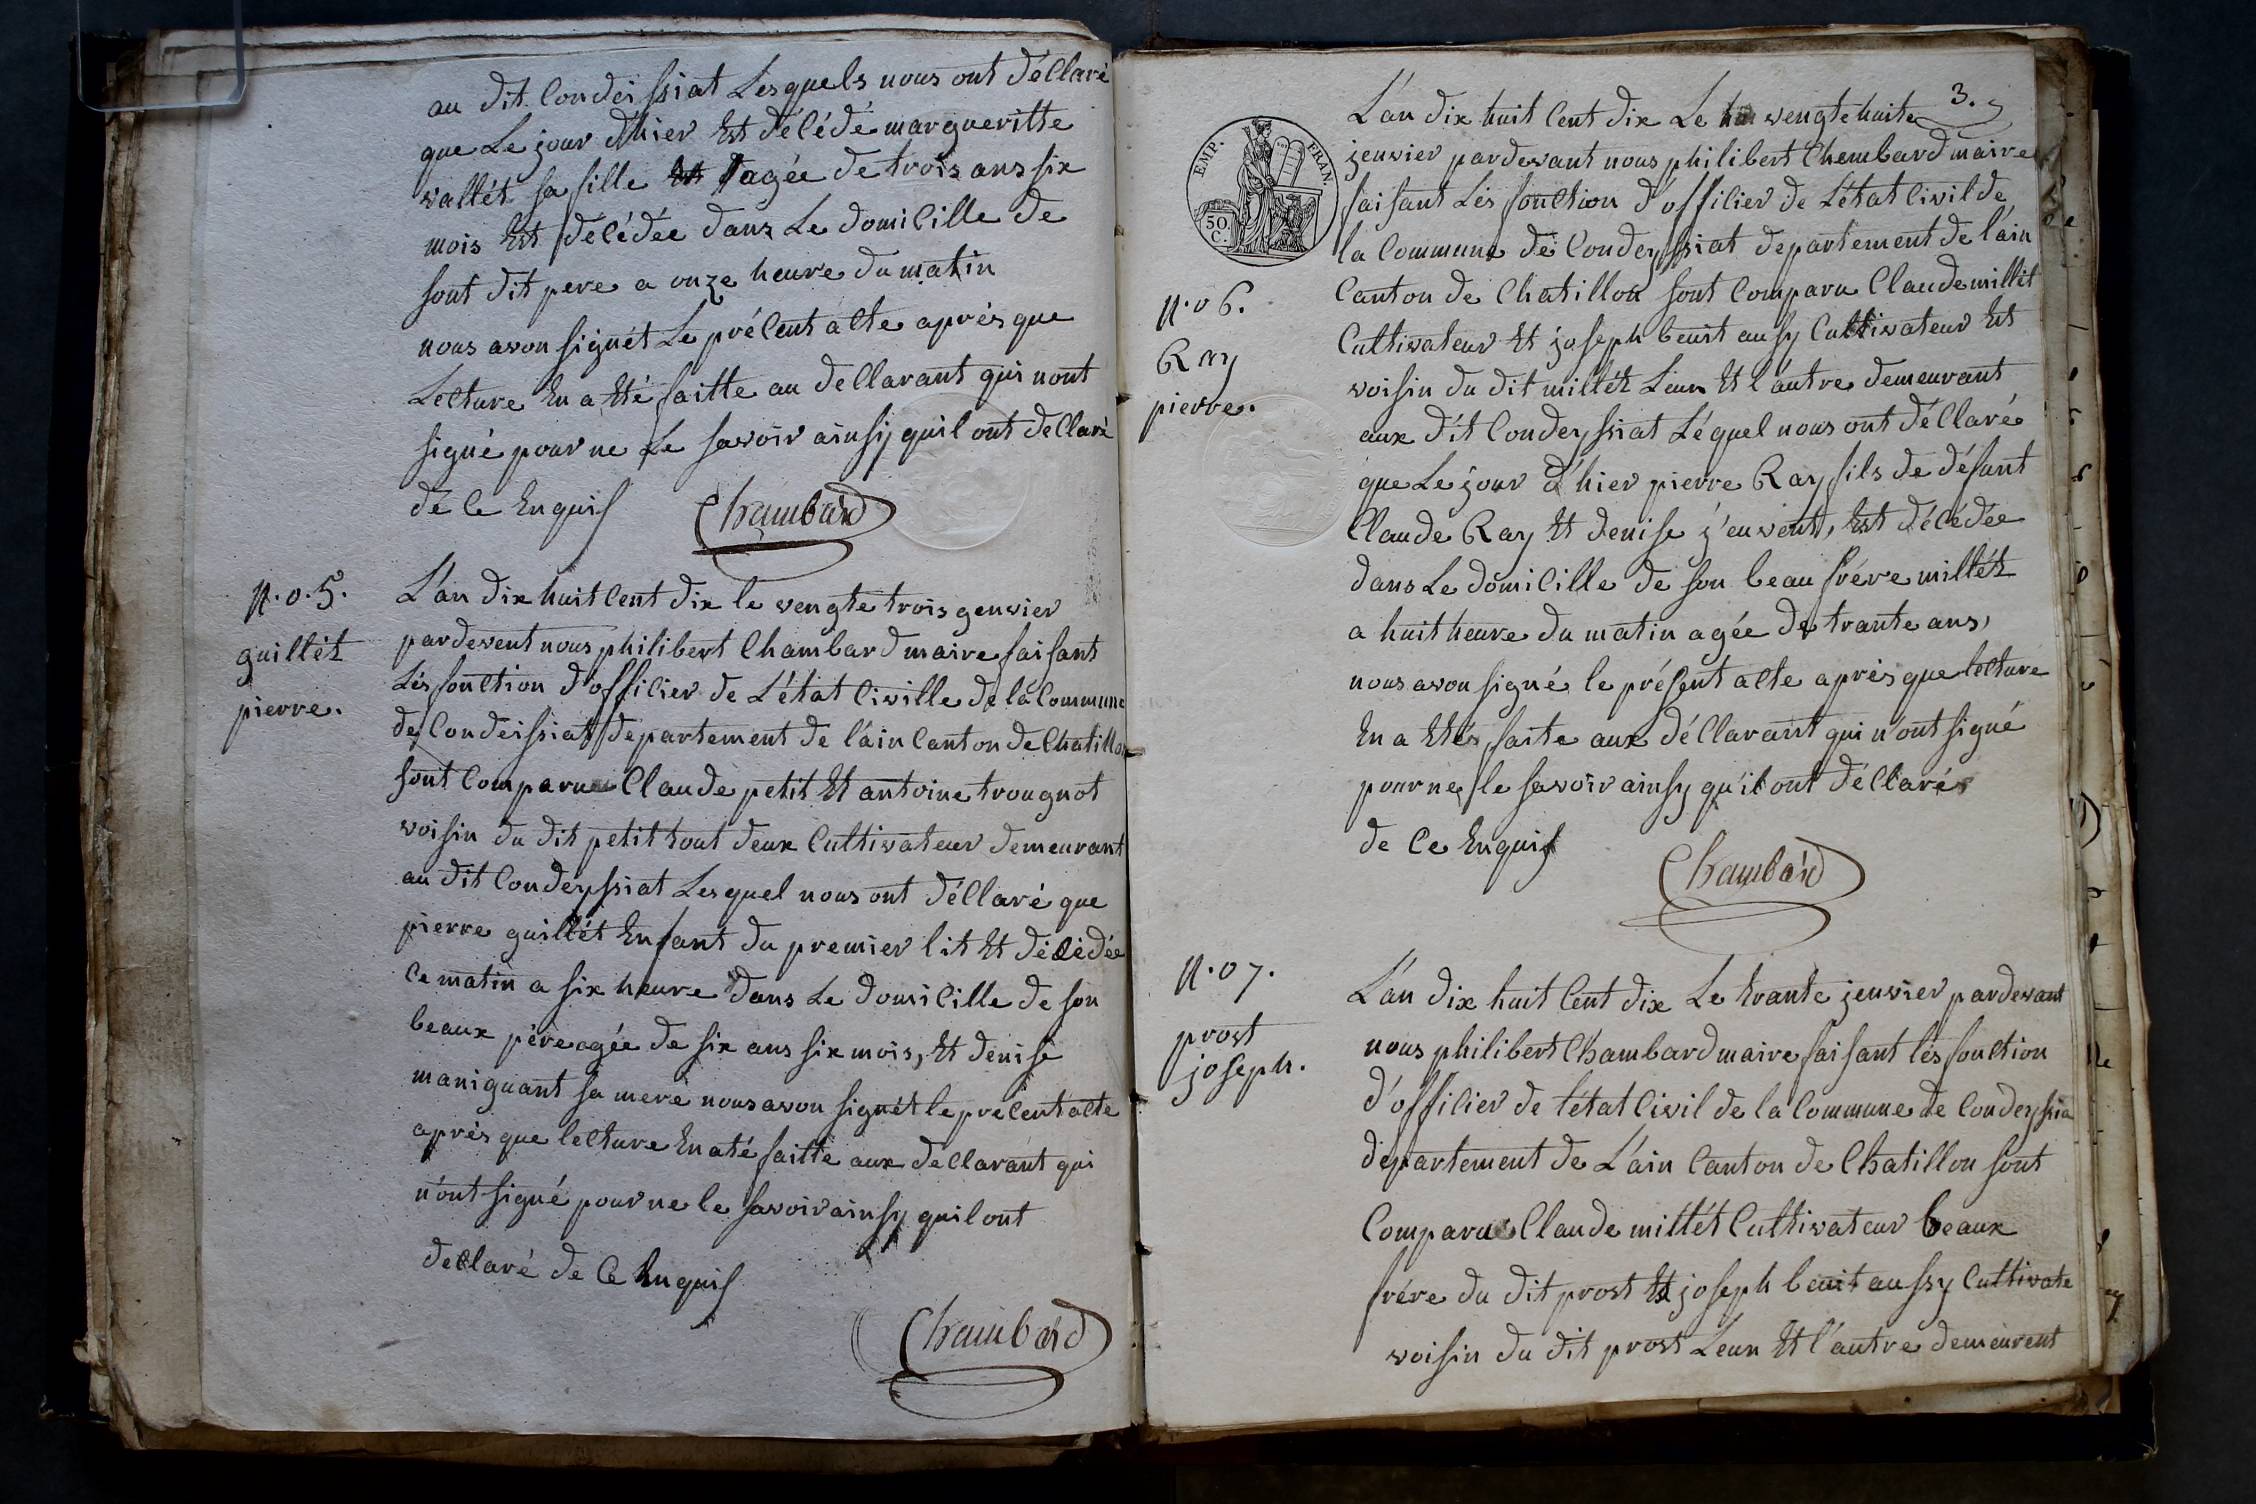 au dit Condeissiat Lesquels nous ont déClaré
que Le jour dhier Est décédé margueritte
vallét sa fille agée de trois ans six
mois Est décédée dans Le domicille de
sont dit pere a onze heure du matin
nous avon signét Le précent acte aprés que
Lecture En a Eté faitte au declarant qui nont
signé pour ne Le savoir ainsy quil ont declaré
de ce Enquis Chambard
N.o.5.
guillét
pierre.
L'an dix huit cent dix le vengte trois genvier
pardevent nous philibert Chambard maire faisant
Lés fonction d'officier de L'état Civille de la Commune
de Condeissiat departement de l'ain Canton de Chatillon
sont Comparu Claude petit Et antoine trougnot
voisin du dit petit tout deux Cultivateur demeurant
au dit Condeyssiat Lesquel nous ont déClaré que
pierre guillét Enfant du premier lit Et décédée
Ce matin a six heure dans Le domicille de son
beaux pére agée de six ans six mois, Et denise
maniguant sa mere nous avon signét le precent acte
aprés que lecture En a té faitte aux declarant qui
n'ont signé pour ne le savoir ainsy quil ont
declaré de Ce Enquis
Chambard
3.
EMP. FRAN.
50 C.
L'an dix huit Cent dix Le vengte huite
jenvier pardevant nous philibert Chembard maire
faisant Lés fonction d'officier de L'état Civil de
la Commune de Condeyssiat departement de l'ain
Canton de Chatillon sont Comparu Claude millét
N.o 6.
Ray
pierre.
Cultivateur Et joseph benit ausy Cultivateur Est
voisin du dit millét Leun Et l'autre demeurant
aux dit Condeyssiat Léquel nous ont déClaré
que Le jour d'hier pierre Ray fils de défunt
Claude Ray Et denise j'euvent, Est décédée
dans Le domicille de son beau frére millét
a huit heure du matin agée de trante ans,
nous avon signé le présent acte aprés que lecture
En a Etés faite aux déClarant qui n'ont signé
pour ne le savoir ainsy qu'il ont déClaré
de Ce Enquis
Chambard
N.o 7.
prost
joseph.
L'an dix huit Cent dix Le trante jenvier pardevant
nous philibert Chambard maire faisant lés fonction
d'officier de l'état Civil de la Commune de Condeyssia
département de L'ain Canton de Chatillon sont
Comparu Claude millét Cultivateur beaux
frére du dit prost Et joseph benit aussy Cultivate
voisin du dit prost Leun Et l'autre demeurent